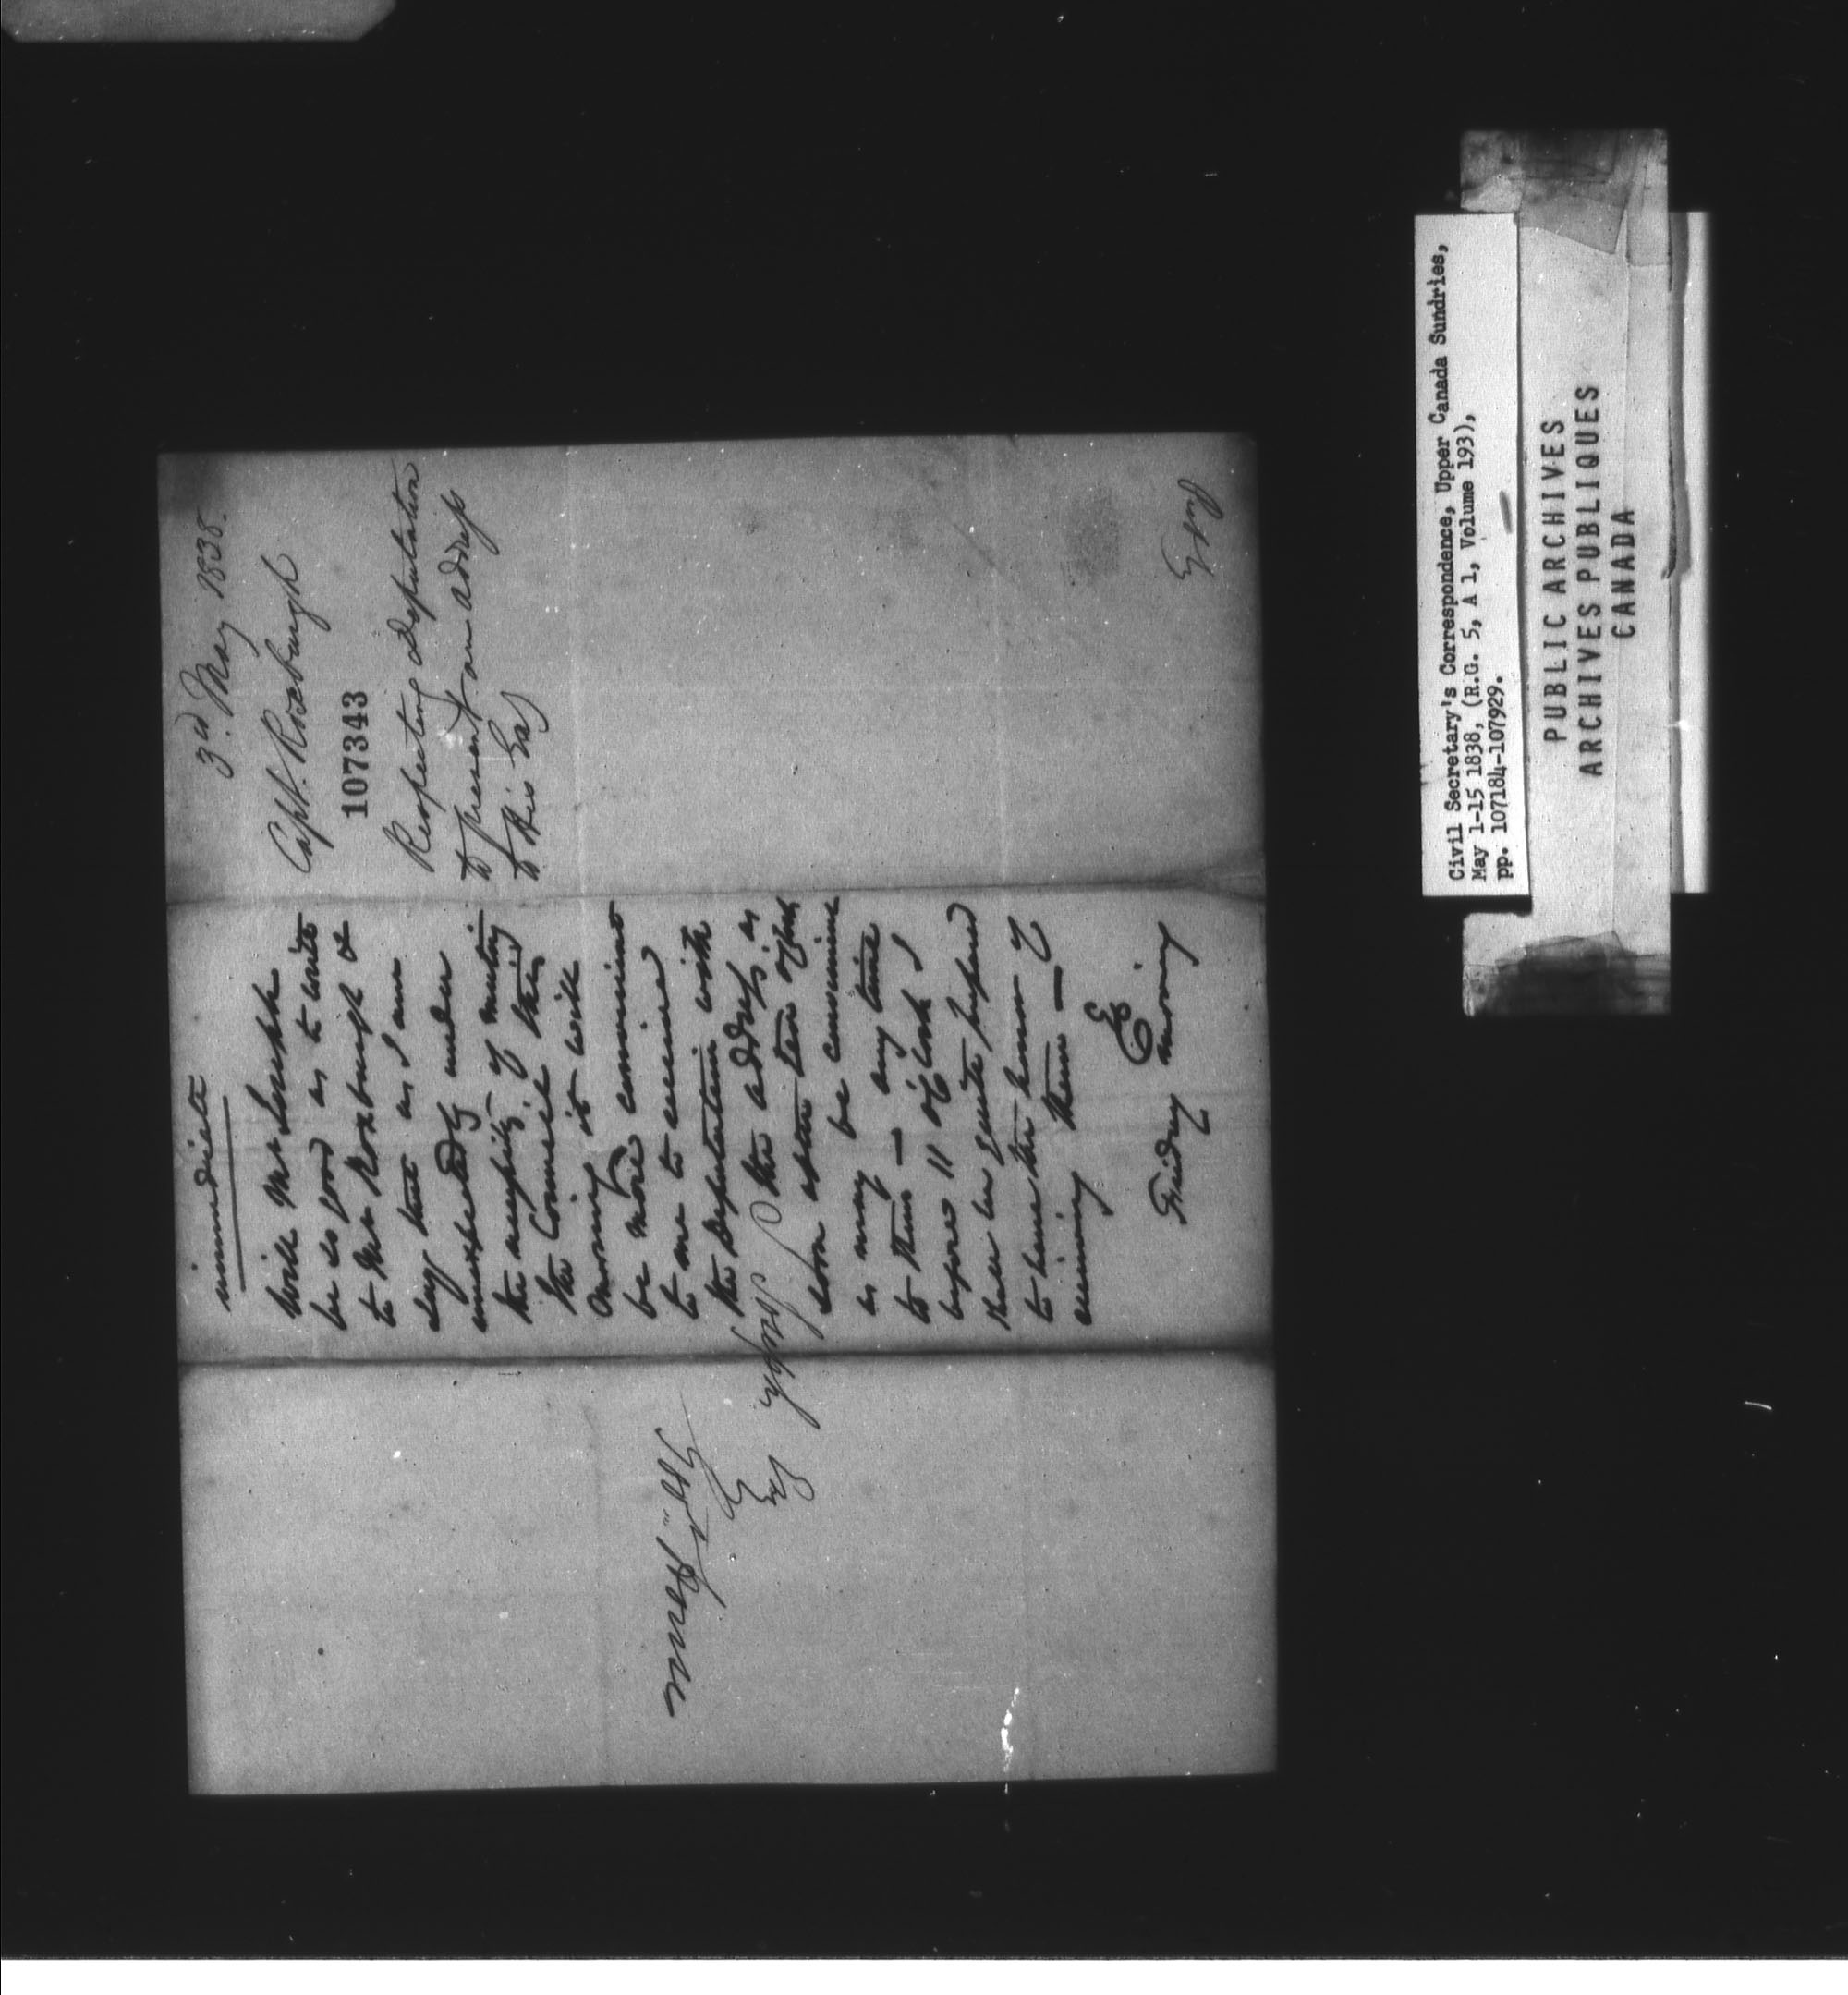 3rd. May 1838.
Capt. Roxburgh
107343
Respecting deputation
to present an address
to His Ex
immediate
Will Mr Joseph
be so good as to write
to Mr Roxburgh &
say that as I am
unexpectedly under
the necessity of meeting
the Council this
morning it will
be more convenient
to me to receive
the Deputation with
the address as
soon after ten o'clock
as may be convenient
to them — any time
before 11 o'clock I
shall be quite prepared
to have the honor of
receiving them —
Friday morning
Joseph
Civil Secretary's Correspondence, Upper Canada Sundries,
May 1-15 1838, (R.G. 5, A 1, Volume 193),
pp. 107184-107929.
PUBLIC ARCHIVES
ARCHIVES PUBLIQUES
CANADA